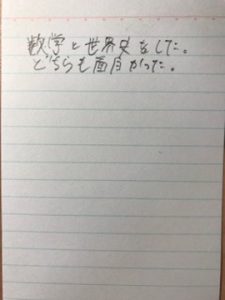 数学と世界史をした。
どちらも面白かった。